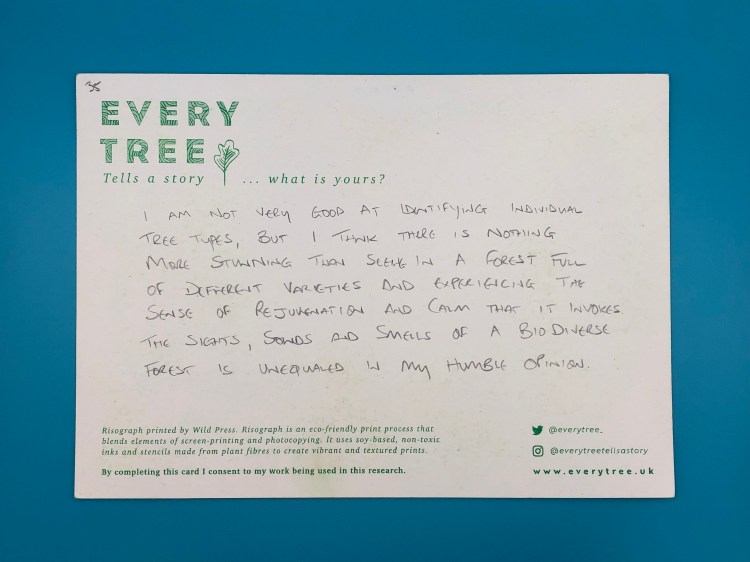 35
EVERY
TREE
Tells a story ... what is yours?
I AM NOT VERY GOOD AT IDENTIFYING INDIVIDUAL
TREE TYPES, BUT I THINK THERE IS NOTHING
MORE STUNNING THAN SEEING IN A FOREST FULL
OF DIFFERENT VARIETIES AND EXPERIENCING THE
SENSE OF REJUVENATION AND CALM THAT IT INVOKES.
THE SIGHTS, SOUNDS AND SMELLS OF A BIODIVERSE
FOREST IS UNEQUALED IN MY HUMBLE OPINION.
Risograph printed by Wild Press. Risograph is an eco-friendly print process that
blends elements of screen-printing and photocopying. It uses soy-based, non-toxic
inks and stencils made from plant fibres to create vibrant and textured prints.
By completing this card I consent to my work being used in this research.
@everytree_
@everytreetellsastory
www.everytree.uk